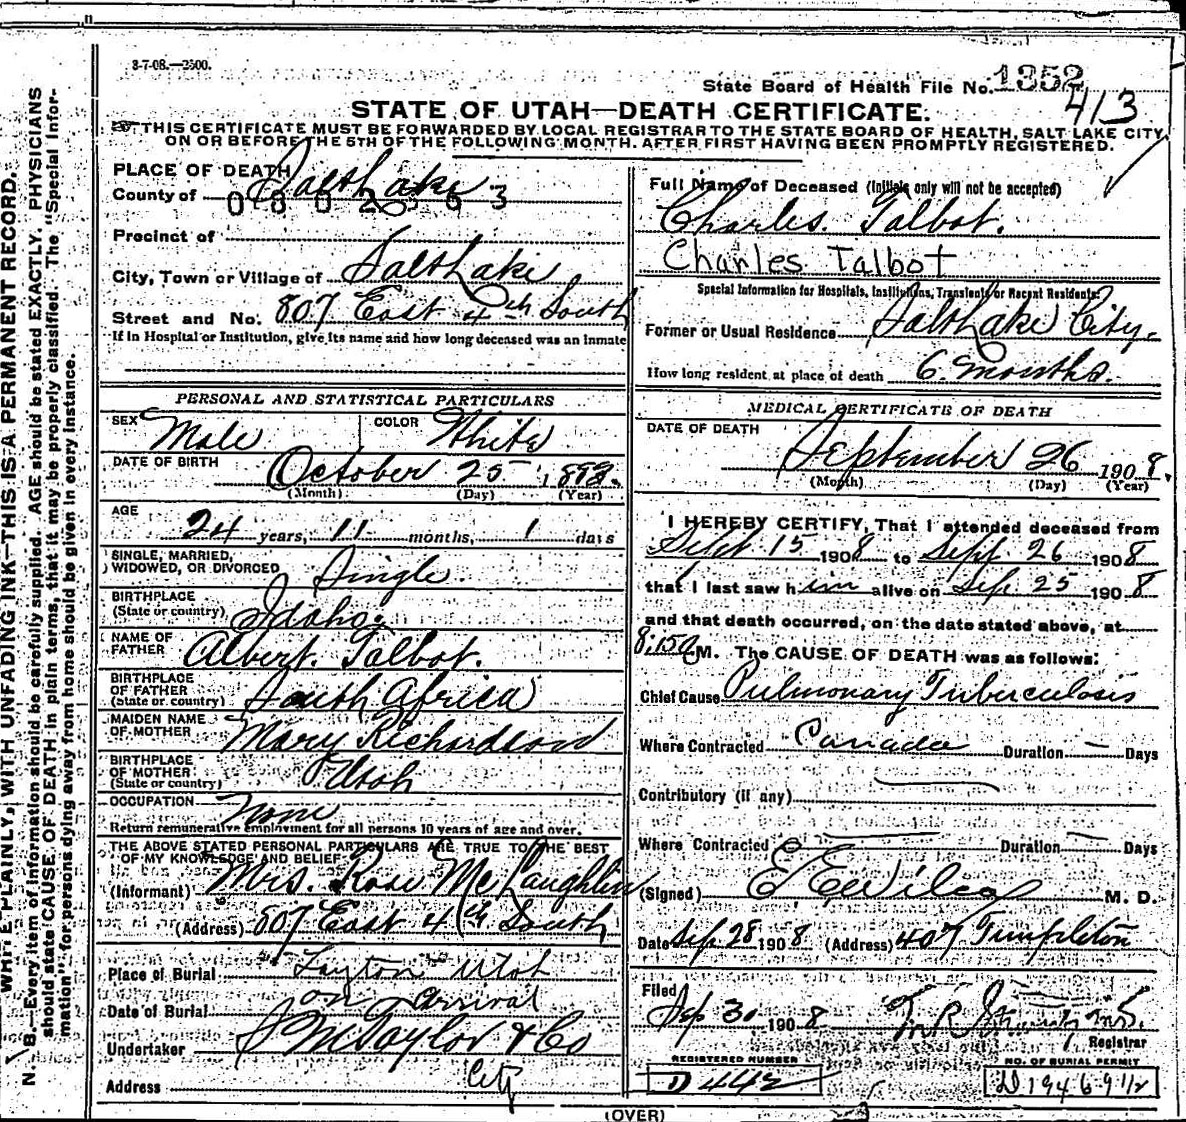 WRITE PLAINLY, WITH UNFADING INK—THIS IS A PERMANENT RECORD.
N. B.—Every item of information should be carefully supplied. AGE should be stated EXACTLY. PHYSICIANS
should state CAUSE OF DEATH in plain terms, that it may be properly classified. The "Special Infor-
mation" for persons dying away from home should be given in every instance.
3-7-08.—2500.
State Board of Health File No. 1352
413
STATE OF UTAH—DEATH CERTIFICATE.
THIS CERTIFICATE MUST BE FORWARDED BY LOCAL REGISTRAR TO THE STATE BOARD OF HEALTH, SALT LAKE CITY,
ON OR BEFORE THE 5TH OF THE FOLLOWING MONTH. AFTER FIRST HAVING BEEN PROMPTLY REGISTERED.
PLACE OF DEATH
County of Salt Lake
Precinct of
City, Town or Village of Salt Lake
Street and No. 807 East 4th South
If in Hospital or Institution, give its name and how long deceased was an inmate
PERSONAL AND STATISTICAL PARTICULARS
SEX Male COLOR White
DATE OF BIRTH October 25, 188
(Month) (Day) (Year)
AGE
24 years, 11 months, 1 days
SINGLE, MARRIED,
WIDOWED, OR DIVORCED Single
BIRTHPLACE
(State or country) Idaho.
NAME OF
FATHER Albert. Talbot.
BIRTHPLACE
OF FATHER
(State or country) South Africa
MAIDEN NAME
OF MOTHER Mary Richardson
BIRTHPLACE
OF MOTHER
(State or country) Utah
OCCUPATION None
Return remunerative employment for all persons 10 years of age and over.
THE ABOVE STATED PERSONAL PARTICULARS ARE TRUE TO THE BEST
OF MY KNOWLEDGE AND BELIEF
(Informant) Mrs. Rose McLaughlin
(Address) 807 East 4th South
Place of Burial Layton Utah
Date of Burial on arrival
Undertaker S M Taylor & Co
Address City
Full Name of Deceased (Initials only will not be accepted)
Charles. Talbot.
Charles Talbot
Special Information for Hospitals, Institutions, Transients or Recent Residents:
Former or Usual Residence Salt Lake City.
How long resident at place of death 6 months.
MEDICAL CERTIFICATE OF DEATH
DATE OF DEATH
September 26 1908.
(Month) (Day) (Year)
I HEREBY CERTIFY, That I attended deceased from
Sept 15 1908 to Sept. 26 1908
that I last saw him alive on Sep. 25 1908
and that death occurred, on the date stated above, at
8,15 M. The CAUSE OF DEATH was as follows:
Chief Cause Pulmonary Tuberculosis
Where Contracted Canada Duration — Days
Contributory (if any)
Where Contracted Duration — Days
(Signed) E E Wilcox M. D.
Date Sep. 28 1908 (Address) 407 Templeton
Filed
Sep 30 1908
Registrar
REGISTERED NUMBER
D 442
NO. OF BURIAL PERMIT
D 19469 1/2
(OVER)